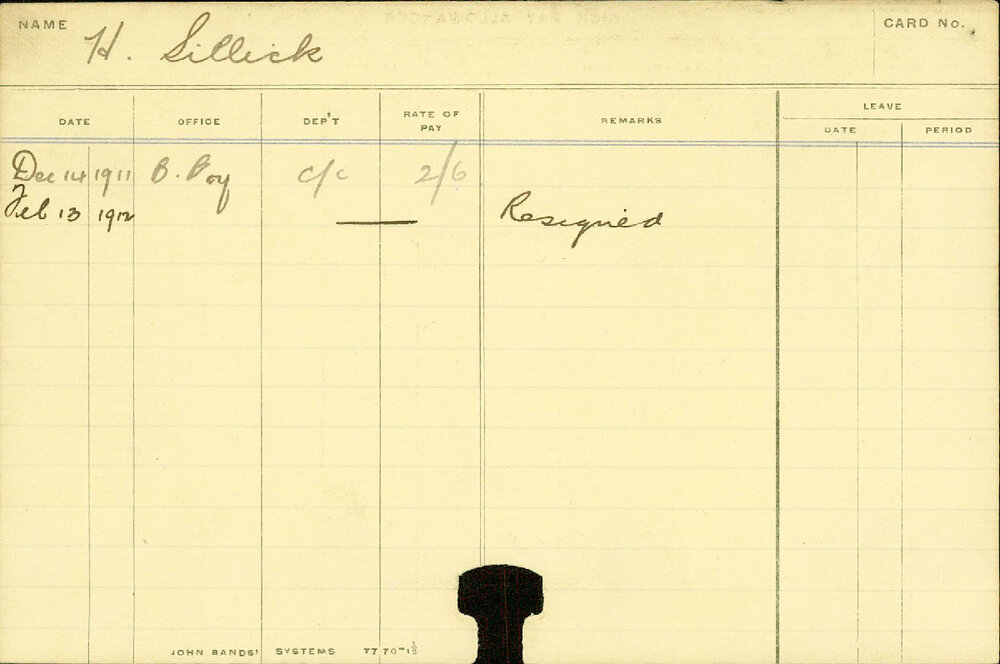 NAME H. Sillick CARD No.
LEAVE
DATE OFFICE DEP'T RATE OF PAY REMARKS DATE PERIOD
Dec 14 1911 B. Boy c/c 2/6
Feb 13 1912 — Resigned
JOHN SANDS' SYSTEMS 77 70